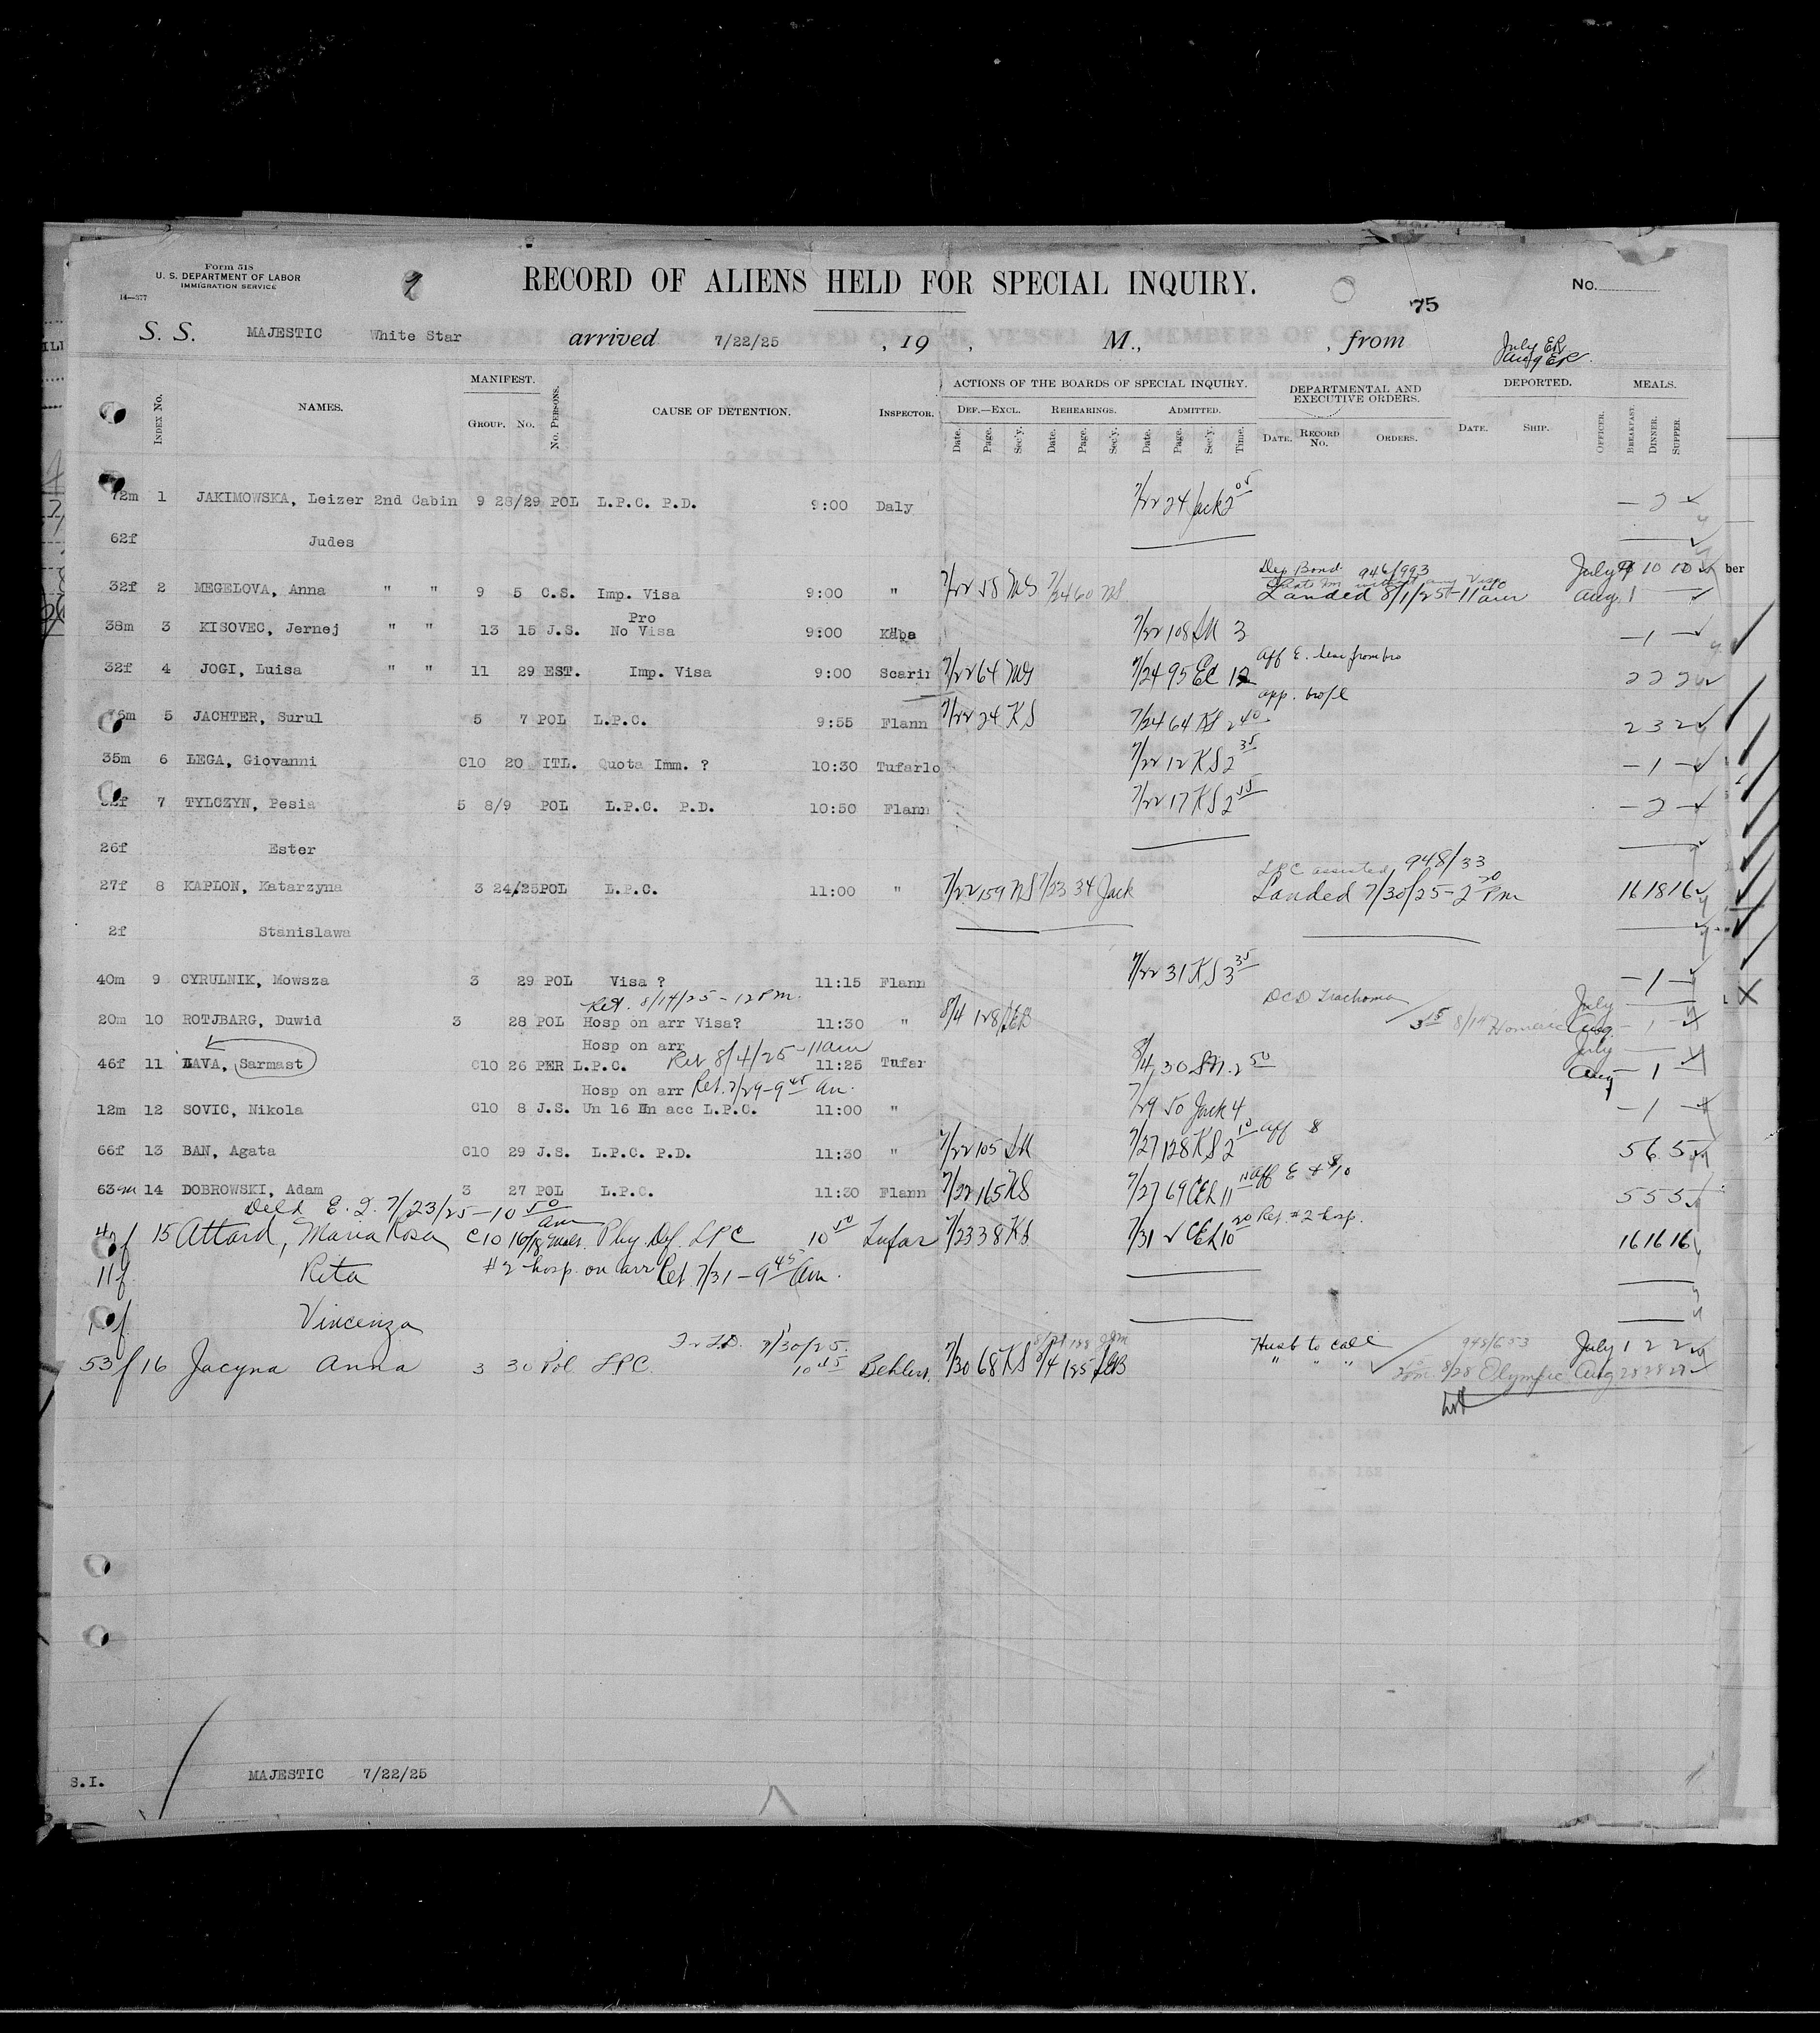 Form 518
U. S. DEPARTMENT OF LABOR
IMMIGRATION SERVICE
14—377
RECORD OF ALIENS HELD FOR SPECIAL INQUIRY.
No.
75
S. S. MAJESTIC White Star arrived 7/22/25, 19 , M., , from
July ER
Aug ER
INDEX No. NAMES. MANIFEST. GROUP. No. No. PERSONS. CAUSE OF DETENTION. INSPECTOR. ACTIONS OF THE BOARDS OF SPECIAL INQUIRY. DEPARTMENTAL AND EXECUTIVE ORDERS. DEPORTED. MEALS.
DEF.—EXCL. REHEARINGS. ADMITTED.
Date. Page. Sec'y. Date. Page. Sec'y. Date. Page. Sec'y. Time. DATE. RECORD No. ORDERS. DATE. SHIP. OFFICER. BREAKFAST. DINNER. SUPPER.
72m 1 JAKIMOWSKA, Leizer 2nd Cabin 9 28/29 POL L.P.C. P.D. 9:00 Daly 7/22 24 Jack 2 05 — 2 ✓
62f Judes
Dep Bond 946/993
32f 2 MEGELOVA, Anna " " 9 5 C.S. Imp. Visa 9:00 " 7/22 58 MS 7/24 60 MS July 9 10 10 ber
Landed 8/1/25-11 40 am Aug. 1
Pro
38m 3 KISOVEC, Jernej " " 13 15 J.S. No Visa 9:00 Kaba 7/22 108 SM 3 — 1 —
32f 4 JOGI, Luisa " " 11 29 EST. Imp. Visa 9:00 Scarin 7/22 64 MS 7/24 95 EC 12 2 2 2
5 JACHTER, Surul 5 7 POL L.P.C. 9:55 Flann 7/22 24 KS 7/24 64 KS 2 40 2 3 2
35m 6 LEGA, Giovanni C10 20 ITL. Quota Imm. ? 10:30 Tufarlo 7/22 12 KS 2 35 — 1 —
7 TYLCZYN, Pesia 5 8/9 POL L.P.C. P.D. 10:50 Flann 7/22 17 KS 2 55 — 2 —
26f Ester
LPC assisted 948/33
27f 8 KAPLON, Katarzyna 3 24/25 POL L.P.C. 11:00 " 7/22 159 MS 7/23 34 Jack Landed 7/30/25-2 20 Pm 16 18 16
2f Stanislawa
40m 9 CYRULNIK, Mowsza 3 29 POL Visa ? 11:15 Flann 7/22 31 KS 3 35 — 1 —
Ret. 8/14/25-12 Pm. DCD Trachoma July
20m 10 ROTJBARG, Duwid 3 28 POL Hosp on arr Visa? 11:30 " 8/4 128 LEB 3 15 8/15 Homeric Aug. — 1 —
Hosp on arr July
46f 11 LAVA, Sarmast C10 26 PER L.P.C. Ret 8/4/25-11 am 11:25 Tufar 8/4 30 SM. 2 50 Aug — 1 —
Hosp on arr Ret. 7/29-9 45 Am.
12m 12 SOVIC, Nikola C10 8 J.S. Un 16 Un acc L.P.C. 11:00 " 7/29 50 Jack 4 — 1 —
66f 13 BAN, Agata C10 29 J.S. L.P.C. P.D. 11:30 " 7/22 105 SM 7/27 128 KS 2 10 aff 8 5 6 5
63m 14 DOBROWSKI, Adam 3 27 POL L.P.C. 11:30 Flann 7/22 165 KS 7/27 69 CEL 11 5 5 5
Deld E. I. 7/23/25-10 50 am
15 Attard, Maria Rosa C10 16/18 Phy. Def. LPC 10 50 Tufar 7/23 38 KS 7/31 2 CEL 10 20 Ret. #2 hosp. 16 16 16
11f Rita #2 hosp. on arr Ret. 7/31-9 45 Am.
Vincenza
7/30/25. Husb to call 948/653 July 1 2 2
53f 16 Jacyna Anna 3 30 Pol. LPC. 10 45 7/30 68 KS 8/4 185 LEB " " " 8/28 Olympic Aug 28 28 27
S.I. MAJESTIC 7/22/25